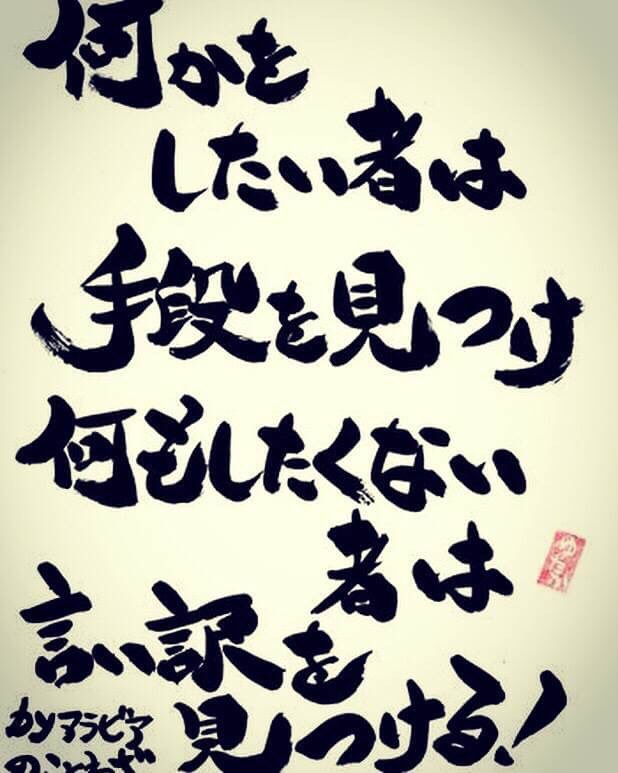 何かを
したい者は
手段を見つけ
何もしたくない
者は
言い訳を
見つける!
アラビア
のことわざ